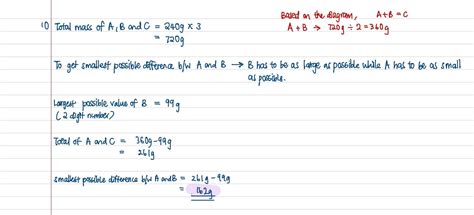 10) Total mass of A, B and C = 240g × 3
= 720g
Based on the diagram, A+B = C
A+B → 720g ÷ 2 = 360g
To get smallest possible difference b/w A and B → B has to be as large as possible while A has to be as small
as possible.
Largest possible value of B = 99g
(2 digit number)
Total of A and C = 360g - 99g
= 261g
Smallest possible difference b/w A and B = 261g - 99g
= 162g